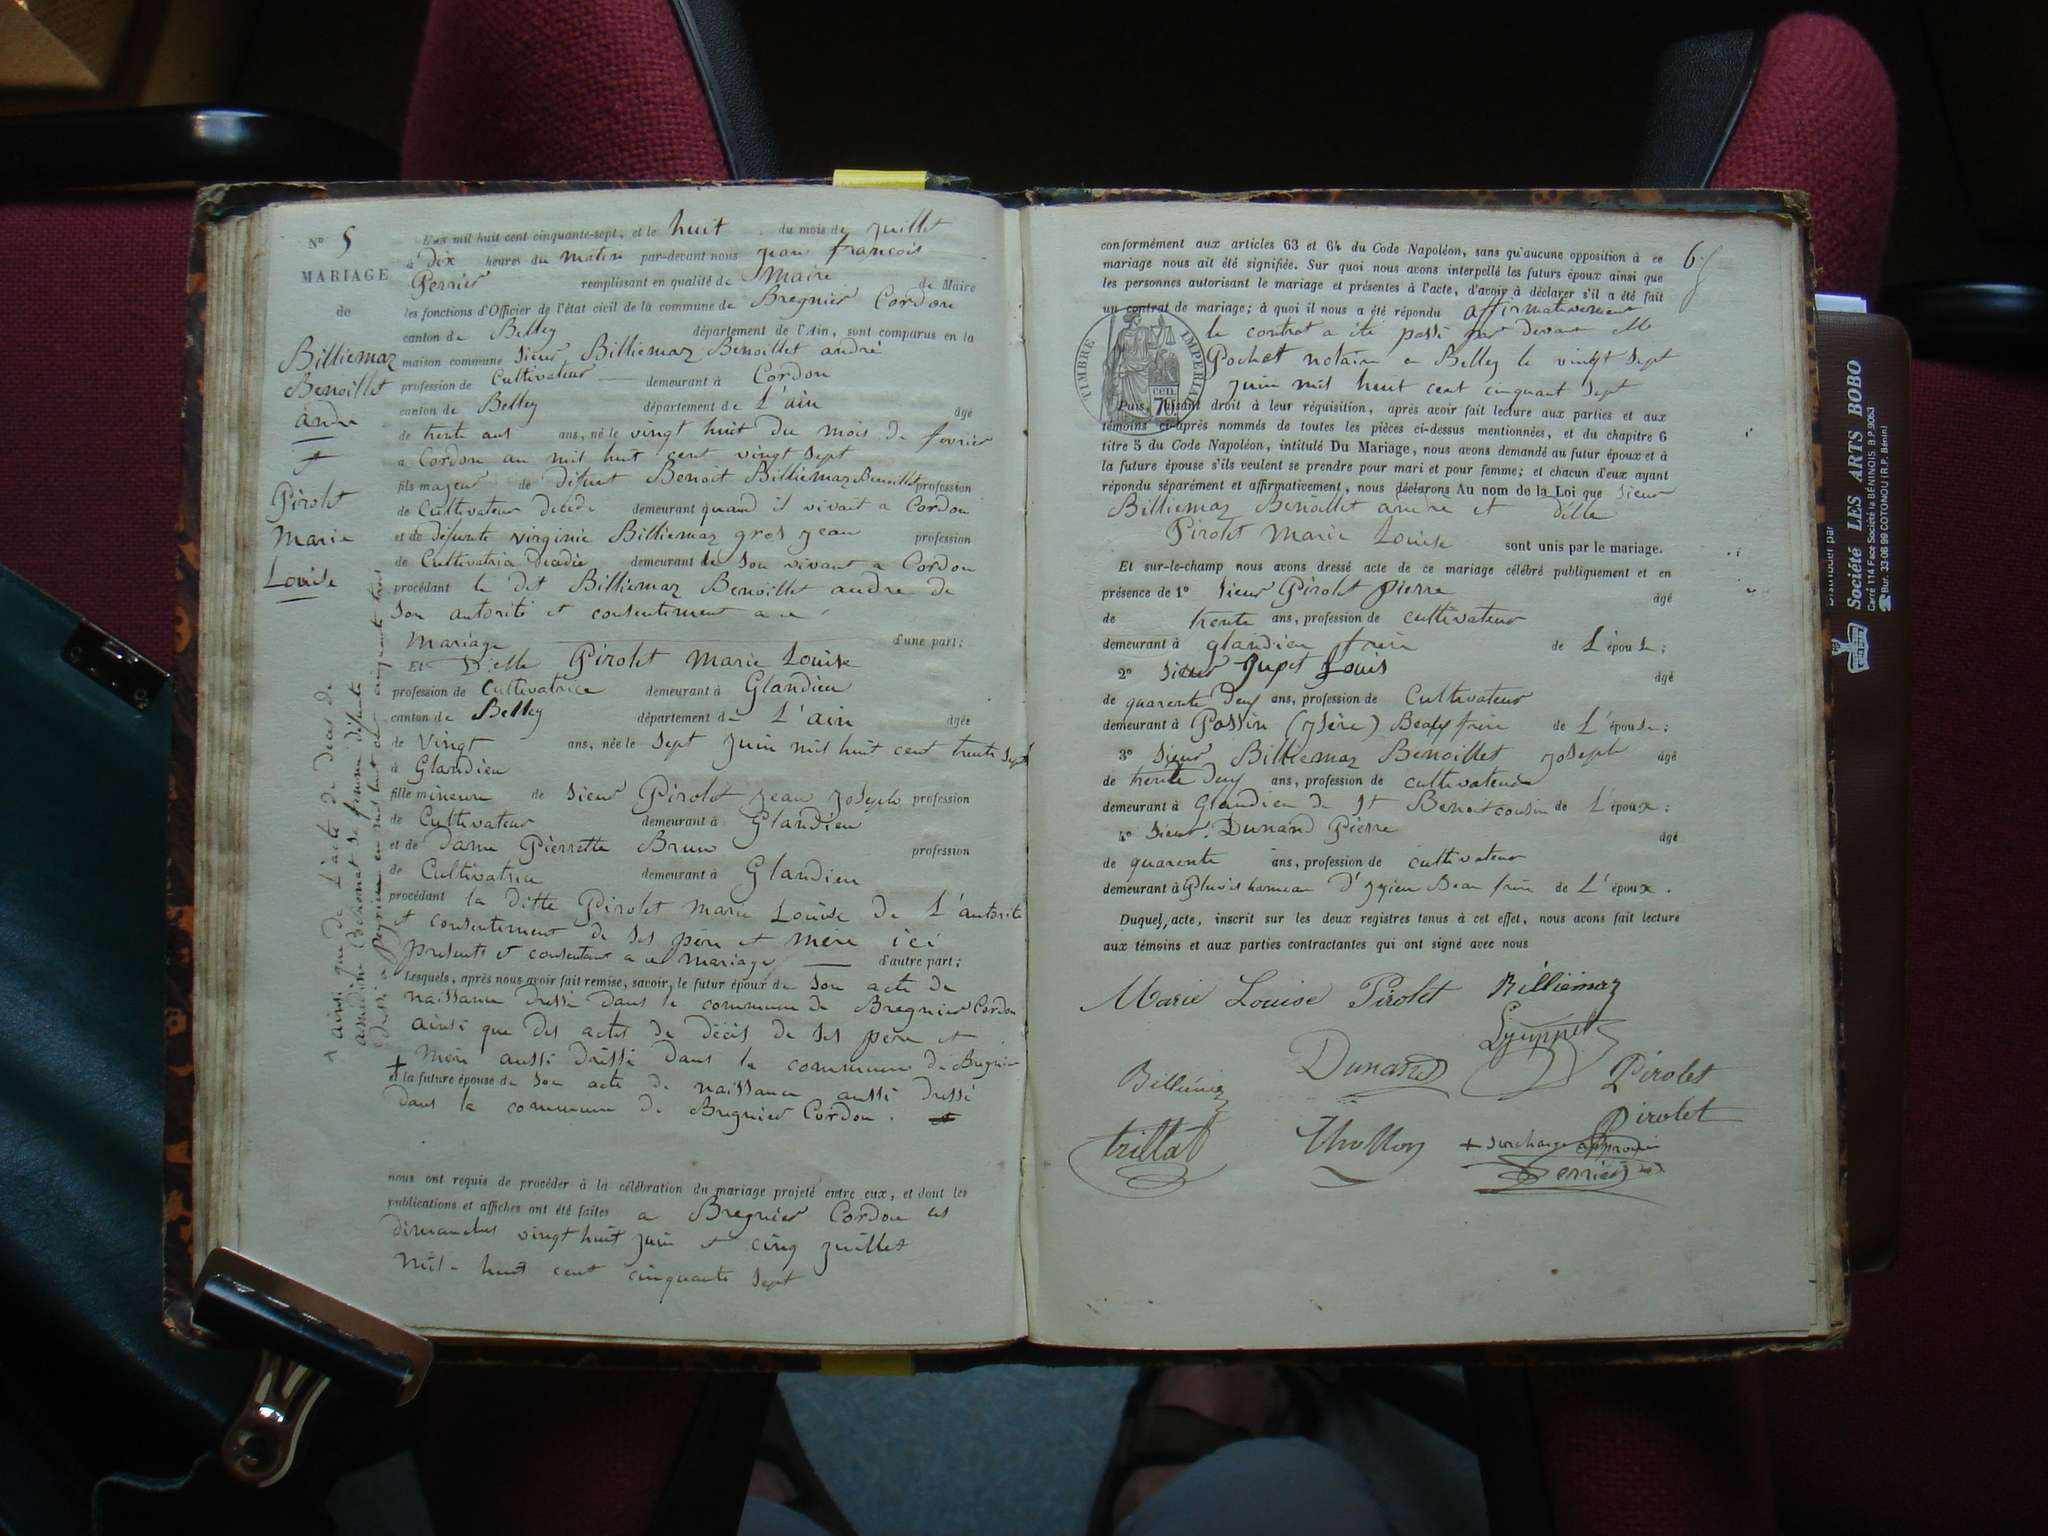 N° 5
MARIAGE
de
Billiemaz
Benoillet
andré
et
Pirolet
Marie
Louise
L'an mil huit cent cinquante-sept, et le huit du mois de juillet
à dix heures du matin par-devant nous jean françois
Perrier remplissant en qualité de Maire de Maire
les fonctions d'Officier de l'état civil de la commune de Bregnier Cordon
canton de Belley département de l'Ain, sont comparus en la
maison commune sieur Billiemaz Benoillet andré
profession de Cultivateur demeurant à Cordon
canton de Belley département de L'ain âgé
de trente ans ans, né le vingt huit du mois de fevrier
a Cordon an mil huit cent vingt sept
fils majeur de défunt Benoit Billiemaz Benoillet profession
de Cultivateur décédé demeurant quand il vivait a Cordon
et de defunte virginie Billiemaz gros jean profession
de Cultivatrice decedée demeurant de son vivant a Cordon
procédant le dit Billiemaz Benoillet andre de
son autorité et consentement a ce
mariage d'une part;
Et Dlle Pirolet Marie Louise
profession de Cultivatrice demeurant à Glandieu
canton de Belley département de L'ain âgée
de vingt ans, née le sept juin mil huit cent trente sept
à Glandieu
fille mineure de sieur Pirolet jean joseph profession
de Cultivateur demeurant à Glandieu
et de dame Pierrette Brun profession
de Cultivatrice demeurant à Glandieu
procédant la ditte Pirolet marie Louise de L'autorité
et consentement de ses père et mère ici
présents et consentant a ce mariage d'autre part;
Lesquels, après nous avoir fait remise, savoir, le futur époux de son acte de
naissance dressé dans la commune de Bregnier Cordon
ainsi que des actes de décès de ses père et
+ mère aussi dressé dans la commune de Bregnier
et la future épouse de son acte de naissance aussi dressé
dans la commune de Bregnier Cordon.
nous ont requis de procéder à la célébration du mariage projeté entre eux, et dont les
publications et affiches ont été faites a Bregnier Cordon les
dimanches vingt huit juin et cinq juillet
mil huit cent cinquante sept
+ ainsi que de L'acte de décès de
sa femme défunte
en mil huit cent cinquante trois
6
conformément aux articles 63 et 64 du Code Napoléon, sans qu'aucune opposition à ce
mariage nous ait été signifiée. Sur quoi nous avons interpellé les futurs époux ainsi que
les personnes autorisant le mariage et présentes à l'acte, d'avoir à déclarer s'il a été fait
un contrat de mariage; à quoi il nous a été répondu affirmativement
le contrat a été passé par devant Me
Pochet notaire a Belley le vingt sept
juin mil huit cent cinquant sept
TIMBRE IMPERIAL
70 CEN.
Puis, faisant droit à leur réquisition, après avoir fait lecture aux parties et aux
témoins ci-après nommés de toutes les pièces ci-dessus mentionnées, et du chapitre 6
titre 5 du Code Napoléon, intitulé Du Mariage, nous avons demandé au futur époux et à
la future épouse s'ils veulent se prendre pour mari et pour femme; et chacun d'eux ayant
répondu séparément et affirmativement, nous déclarons Au nom de la Loi que sieur
Billiemaz Benoillet andre et dlle
Pirolet Marie Louise sont unis par le mariage.
Et sur-le-champ nous avons dressé acte de ce mariage célébré publiquement et en
présence de 1° sieur Pirolet pierre âgé
de trente ans, profession de cultivateur
demeurant à glandieu frère de L'épouse;
2° sieur Jupet Louis âgé
de quarente deux ans, profession de Cultivateur
demeurant à Possin (jsère) Beaux frère de L'épouse;
3° sieur Billiemaz Benoillet joseph âgé
de trente deux ans, profession de cultivateur
demeurant à Glandieu de st Benoit cousin de L'époux;
4° sieur Dunand Pierre âgé
de quarente ans, profession de cultivateur
demeurant à hameau d'jzieu Beau frère de L'époux.
Duquel acte, inscrit sur les deux registres tenus à cet effet, nous avons fait lecture
aux témoins et aux parties contractantes qui ont signé avec nous
Marie Louise Pirolet Billiemaz
Dunand
Pirolet
Pirolet
trillat Thollon + surcharge approuvée
Perrier
Distribuer par
Société LES ARTS BOBO
Carré 114 Face Société la BÉNINOIS. B.P.9053
Bur. 33-06 99 COTONOU (R.P. Bénin)